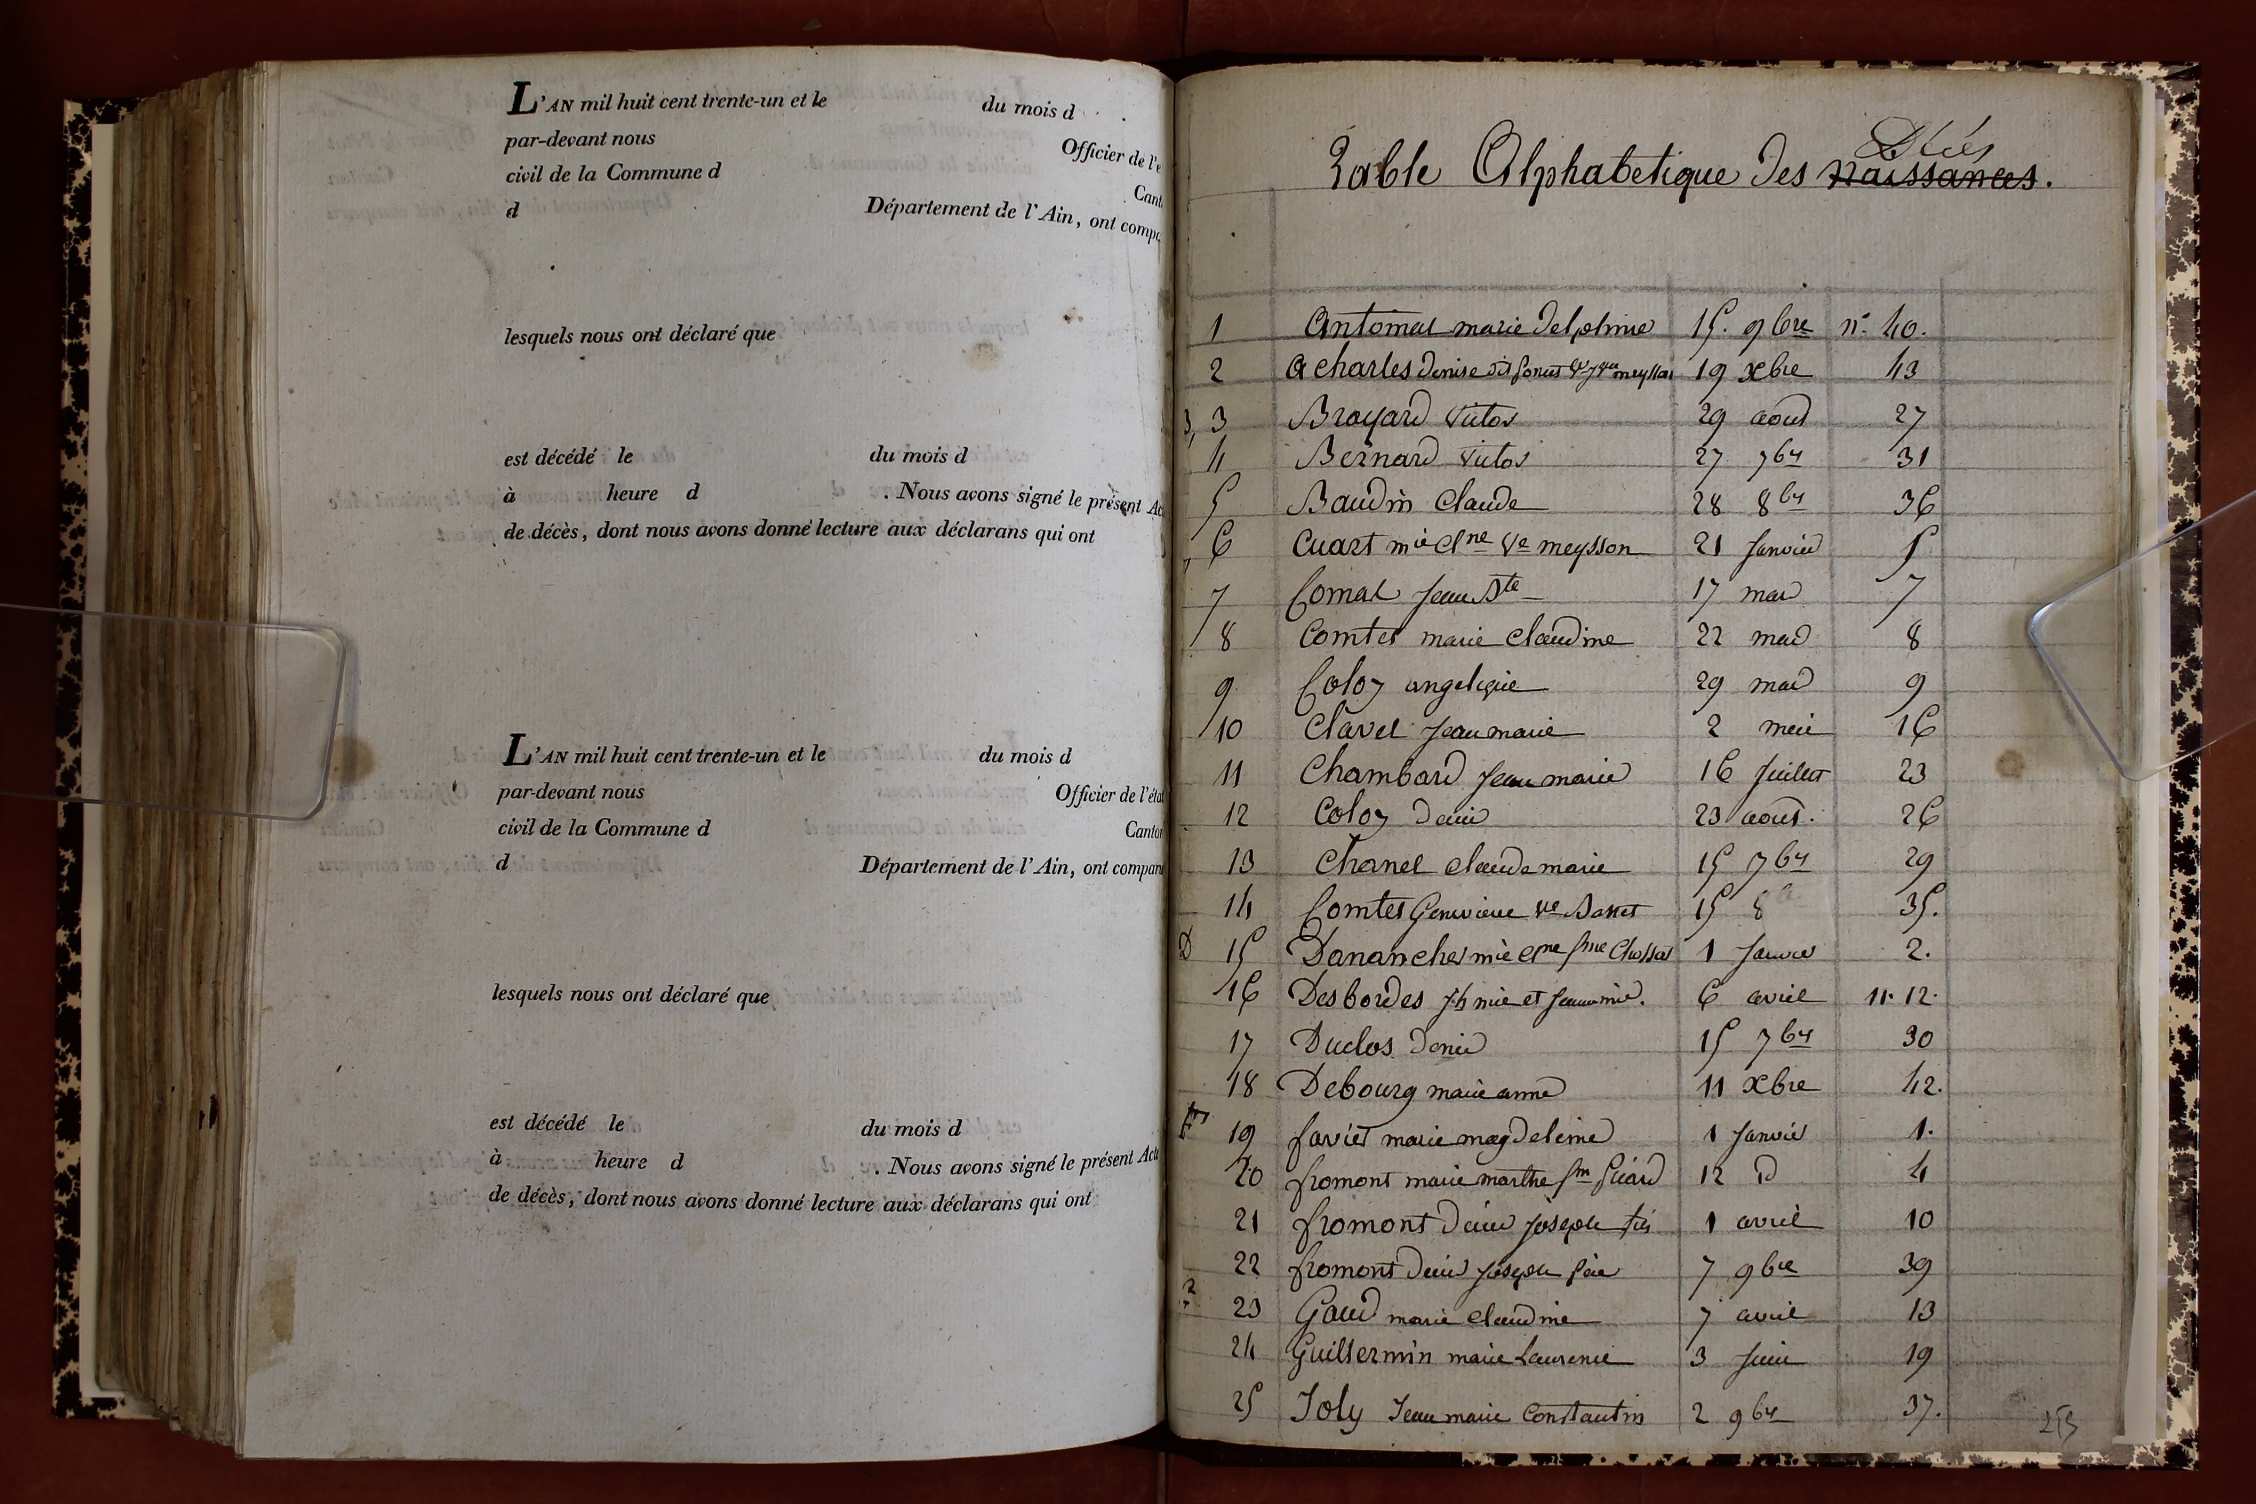 L'AN mil huit cent trente-un et le du mois d
par-devant nous Officier de l'é
civil de la Commune d Cant
d Département de l'Ain, ont compa
lesquels nous ont déclaré que
est décédé le du mois d
à heure d . Nous avons signé le présent Ac
de décès, dont nous avons donné lecture aux déclarans qui ont
L'AN mil huit cent trente-un et le du mois d
par-devant nous Officier de l'état
civil de la Commune d Canton
d Département de l'Ain, ont comparu
lesquels nous ont déclaré que
est décédé le du mois d
à heure d . Nous avons signé le présent Acte
de décès, dont nous avons donné lecture aux déclarans qui ont
Décès
Table Alphabetique des naissances.
1 marie delphine 15. 9bre n°. 40.
2 Acharles denise 19 xbre 43
3 Broyard victor 29 aout 27
4 Bernard victor 27 7br 31
5 Baudin Claude 28 8br 36
6 Cuart mie Cne ve meysson 21 Janvier 5
7 Jean Bte 17 mars 7
8 Comtet marie Claudine 22 mars 8
9 angelique 29 mars 9
10 Clavel Jean marie 2 mai 16
11 Chambard Jean marie 16 Juillet 23
12 denis 23 aout. 26
13 Chanel Claude marie 15 7br 29
14 Comtet Genevieve ve 15 8 35.
D 15 Dananches mie Cne fme 1 Janvier 2.
16 Desbordes Jh mie et Jean mie. 6 avril 11. 12.
17 Duclos denis 15 7br 30
18 Debourg marie anne 11 xbre 42.
F 19 favier marie magdeleine 1 Janvier 1.
20 fromont marie marthe fme 12 d 4
21 fromont denis Joseph fils 1 avril 10
22 fromont denis Joseph père 7 9bre 39
23 Gaud marie Claudine 7 avril 13
24 Guillermin marie Laurence 3 Juin 19
25 Joly Jean marie Constantin 2 9br 37.
253